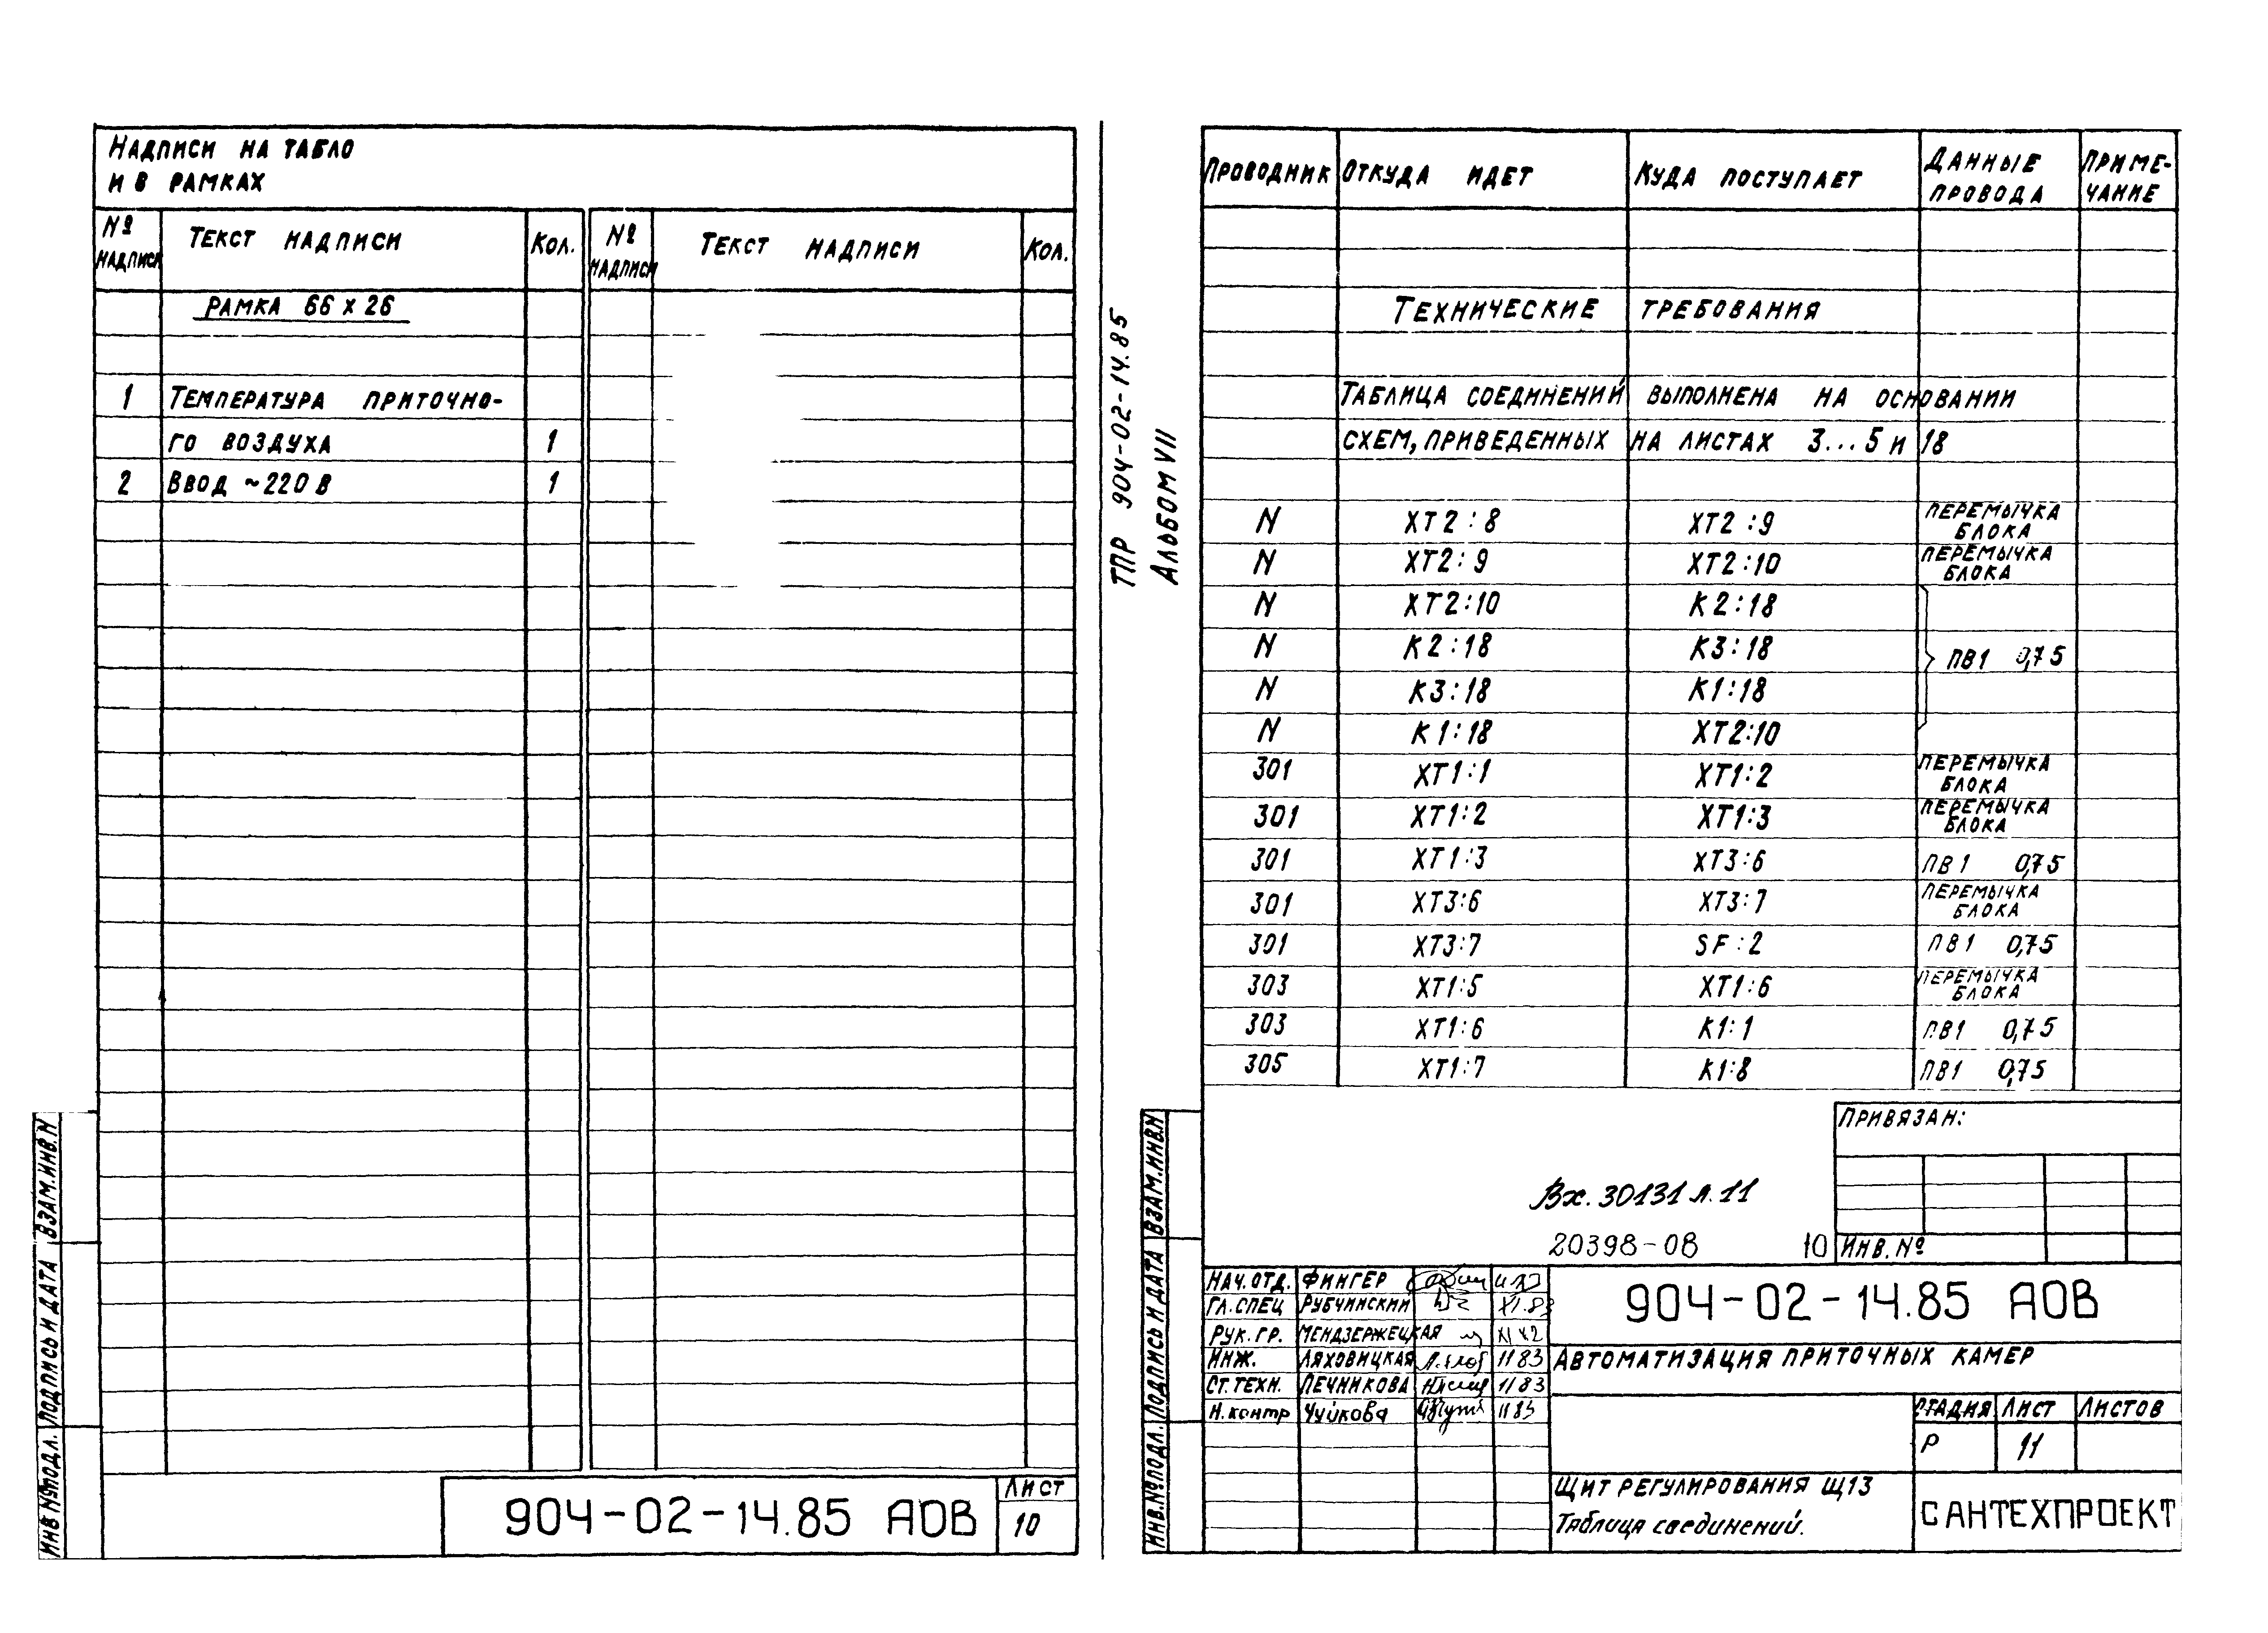 НАДПИСИ НА ТАБЛО
И В РАМКАХ
№ НАДПИСИ ТЕКСТ НАДПИСИ КОЛ. № НАДПИСИ ТЕКСТ НАДПИСИ КОЛ.
РАМКА 66 х 26
1 ТЕМПЕРАТУРА ПРИТОЧНО-
ГО ВОЗДУХА 1
2 ВВОД ~220 В 1
904-02-14.85 АОВ
ЛИСТ
10
ИНВ №ПОДЛ. ПОДПИСЬ И ДАТА ВЗАМ.ИНВ.N
ТПР 904-02-14.85
АЛЬБОМ VII
ПРОВОДНИК ОТКУДА ИДЕТ КУДА ПОСТУПАЕТ ДАННЫЕ ПРОВОДА ПРИМЕ-ЧАНИЕ
ТЕХНИЧЕСКИЕ ТРЕБОВАНИЯ
ТАБЛИЦА СОЕДИНЕНИЙ ВЫПОЛНЕНА НА ОСНОВАНИИ
СХЕМ, ПРИВЕДЕННЫХ НА ЛИСТАХ 3...5 И 18
N ХТ2:8 ХТ2:9 ПЕРЕМЫЧКА БЛОКА
N ХТ2:9 ХТ2:10 ПЕРЕМЫЧКА БЛОКА
N ХТ2:10 К2:18
N К2:18 К3:18 ПВ1 0,75
N К3:18 К1:18
N К1:18 ХТ2:10
301 ХТ1:1 ХТ1:2 ПЕРЕМЫЧКА БЛОКА
301 ХТ1:2 ХТ1:3 ПЕРЕМЫЧКА БЛОКА
301 ХТ1:3 ХТ3:6 ПВ1 0,75
301 ХТ3:6 ХТ3:7 ПЕРЕМЫЧКА БЛОКА
301 ХТ3:7 SF:2 ПВ1 0,75
303 ХТ1:5 ХТ1:6 ПЕРЕМЫЧКА БЛОКА
303 ХТ1:6 К1:1 ПВ1 0,75
305 ХТ1:7 К1:8 ПВ1 0,75
ПРИВЯЗАН:
Вх. 30131 л. 11
20398-08 10 ИНВ. №
НАЧ. ОТД. ФИНГЕР
ГЛ. СПЕЦ РУБЧИНСКИЙ XI.83
РУК. ГР. МЕНДЗЕРЖЕЦКАЯ
ИНЖ. ЛЯХОВИЦКАЯ 11 83
СТ. ТЕХН. ПЕЧНИКОВА 11 83
Н. контр Чуйкова 11 83
904-02-14.85 АОВ
АВТОМАТИЗАЦИЯ ПРИТОЧНЫХ КАМЕР
СТАДИЯ ЛИСТ ЛИСТОВ
Р 11
ЩИТ РЕГУЛИРОВАНИЯ Щ13
Таблица соединений.
САНТЕХПРОЕКТ
ИНВ.№ПОДЛ. ПОДПИСЬ И ДАТА ВЗАМ.ИНВ.N